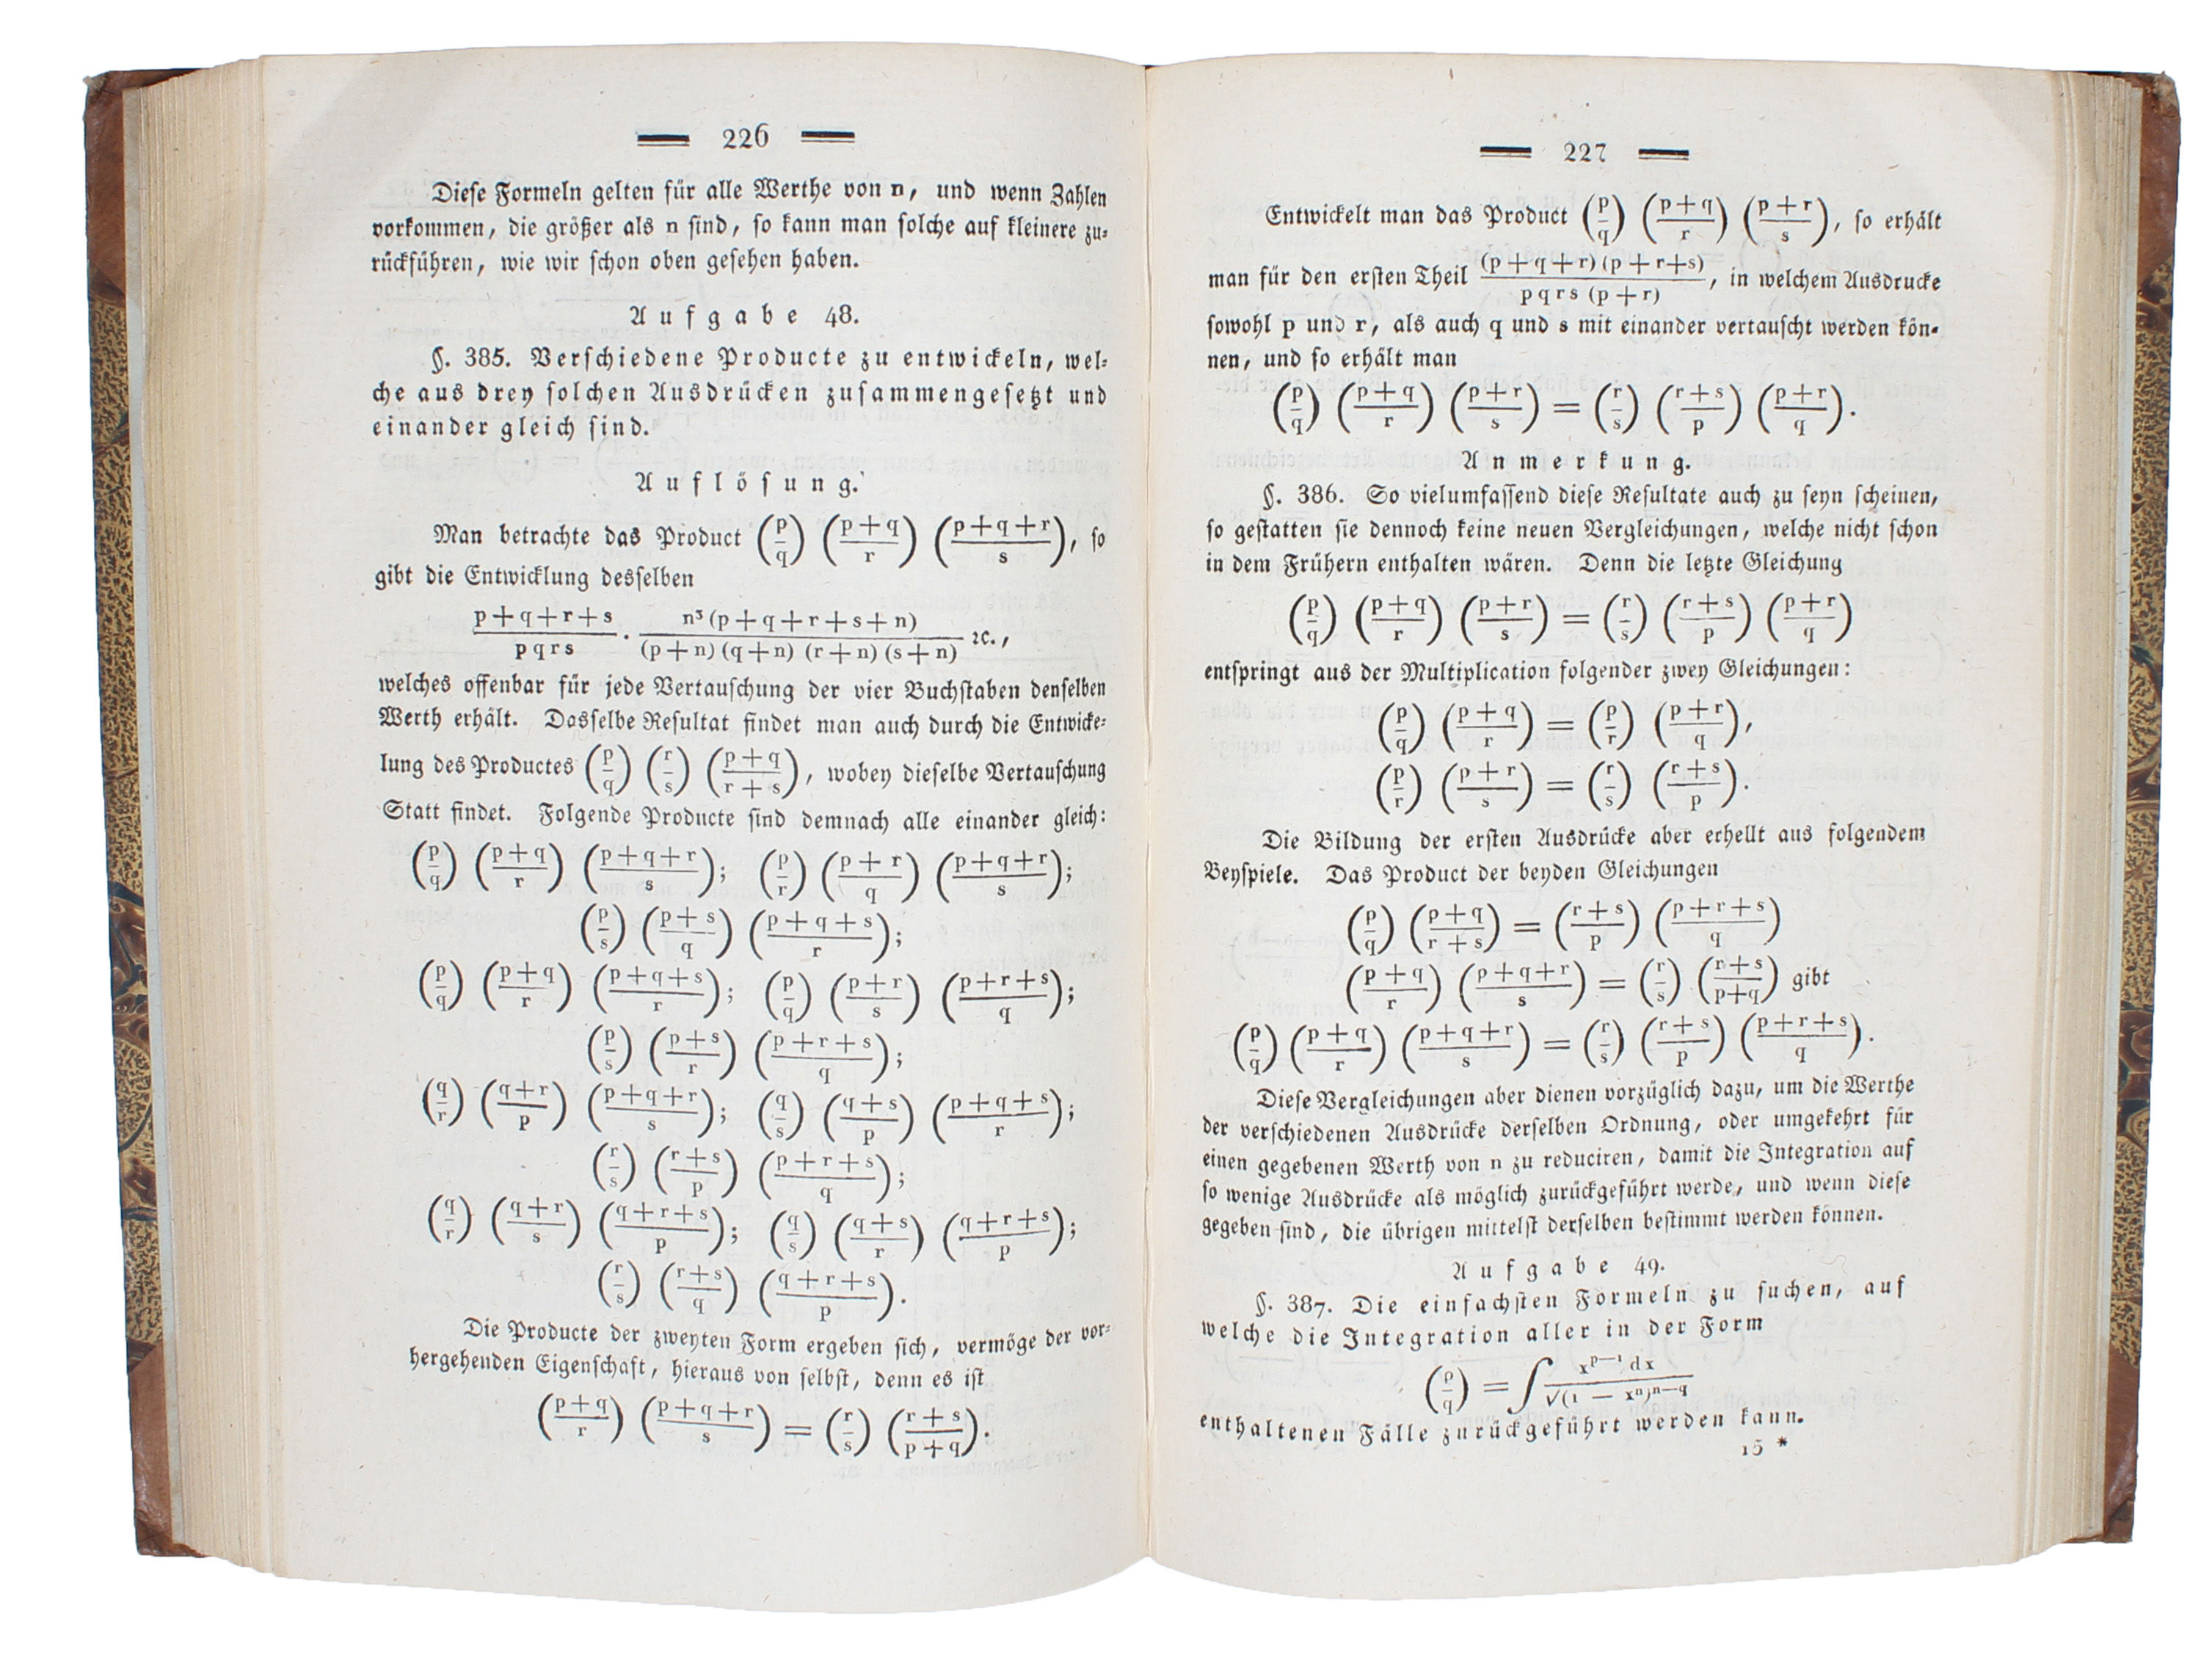 226
Diese Formeln gelten für alle Werthe von n, und wenn Zahlen
vorkommen, die größer als n sind, so kann man solche auf kleinere zu=
rückführen, wie wir schon oben gesehen haben.
Aufgabe 48.
§. 385. Verschiedene Producte zu entwickeln, wel=
che aus drey solchen Ausdrücken zusammengesetzt und
einander gleich sind.
Auflösung.
Man betrachte das Product (p/q) ((p+q)/r) ((p+q+r)/s), so
gibt die Entwicklung desselben
(p+q+r+s)/(pqrs) . (n³(p+q+r+s+n))/((p+n)(q+n)(r+n)(s+n)) ꝛc.,
welches offenbar für jede Vertauschung der vier Buchstaben denselben
Werth erhält. Dasselbe Resultat findet man auch durch die Entwicke=
lung des Productes (p/q) (r/s) ((p+q)/(r+s)), wobey dieselbe Vertauschung
Statt findet. Folgende Producte sind demnach alle einander gleich:
(p/q) ((p+q)/r) ((p+q+r)/s); (p/r) ((p+r)/q) ((p+q+r)/s);
(p/s) ((p+s)/q) ((p+q+s)/r);
(p/q) ((p+q)/r) ((p+q+s)/r); (p/q) ((p+r)/s) ((p+r+s)/q);
(p/s) ((p+s)/r) ((p+r+s)/q);
(q/r) ((q+r)/p) ((p+q+r)/s); (q/s) ((q+s)/p) ((p+q+s)/r);
(r/s) ((r+s)/p) ((p+r+s)/q);
(q/r) ((q+r)/s) ((q+r+s)/p); (q/s) ((q+s)/r) ((q+r+s)/p);
(r/s) ((r+s)/q) ((q+r+s)/p).
Die Producte der zweyten Form ergeben sich, vermöge der vor=
hergehenden Eigenschaft, hieraus von selbst, denn es ist
((p+q)/r) ((p+q+r)/s) = (r/s) ((r+s)/(p+q)).
227
Entwickelt man das Product (p/q) ((p+q)/r) ((p+r)/s), so erhält
man für den ersten Theil ((p+q+r)(p+r+s))/(pqrs(p+r)), in welchem Ausdrucke
sowohl p und r, als auch q und s mit einander vertauscht werden kön=
nen, und so erhält man
(p/q) ((p+q)/r) ((p+r)/s) = (r/s) ((r+s)/p) ((p+r)/q).
Anmerkung.
§. 386. So vielumfassend diese Resultate auch zu seyn scheinen,
so gestatten sie dennoch keine neuen Vergleichungen, welche nicht schon
in dem Frühern enthalten wären. Denn die letzte Gleichung
(p/q) ((p+q)/r) ((p+r)/s) = (r/s) ((r+s)/p) ((p+r)/q)
entspringt aus der Multiplication folgender zwey Gleichungen:
(p/q) ((p+q)/r) = (p/r) ((p+r)/q),
(p/r) ((p+r)/s) = (r/s) ((r+s)/p).
Die Bildung der ersten Ausdrücke aber erhellt aus folgendem
Beyspiele. Das Product der beyden Gleichungen
(p/q) ((p+q)/(r+s)) = ((r+s)/p) ((p+r+s)/q)
((p+q)/r) ((p+q+r)/s) = (r/s) ((r+s)/(p+q)) gibt
(p/q) ((p+q)/r) ((p+q+r)/s) = (r/s) ((r+s)/p) ((p+r+s)/q).
Diese Vergleichungen aber dienen vorzüglich dazu, um die Werthe
der verschiedenen Ausdrücke derselben Ordnung, oder umgekehrt für
einen gegebenen Werth von n zu reduciren, damit die Integration auf
so wenige Ausdrücke als möglich zurückgeführt werde, und wenn diese
gegeben sind, die übrigen mittelst derselben bestimmt werden können.
Aufgabe 49.
§. 387. Die einfachsten Formeln zu suchen, auf
welche die Integration aller in der Form
(p/q) = ∫ (x^(p−1) dx)/(√(1 − xⁿ)^(n−q))
enthaltenen Fälle zurückgeführt werden kann.
15 *